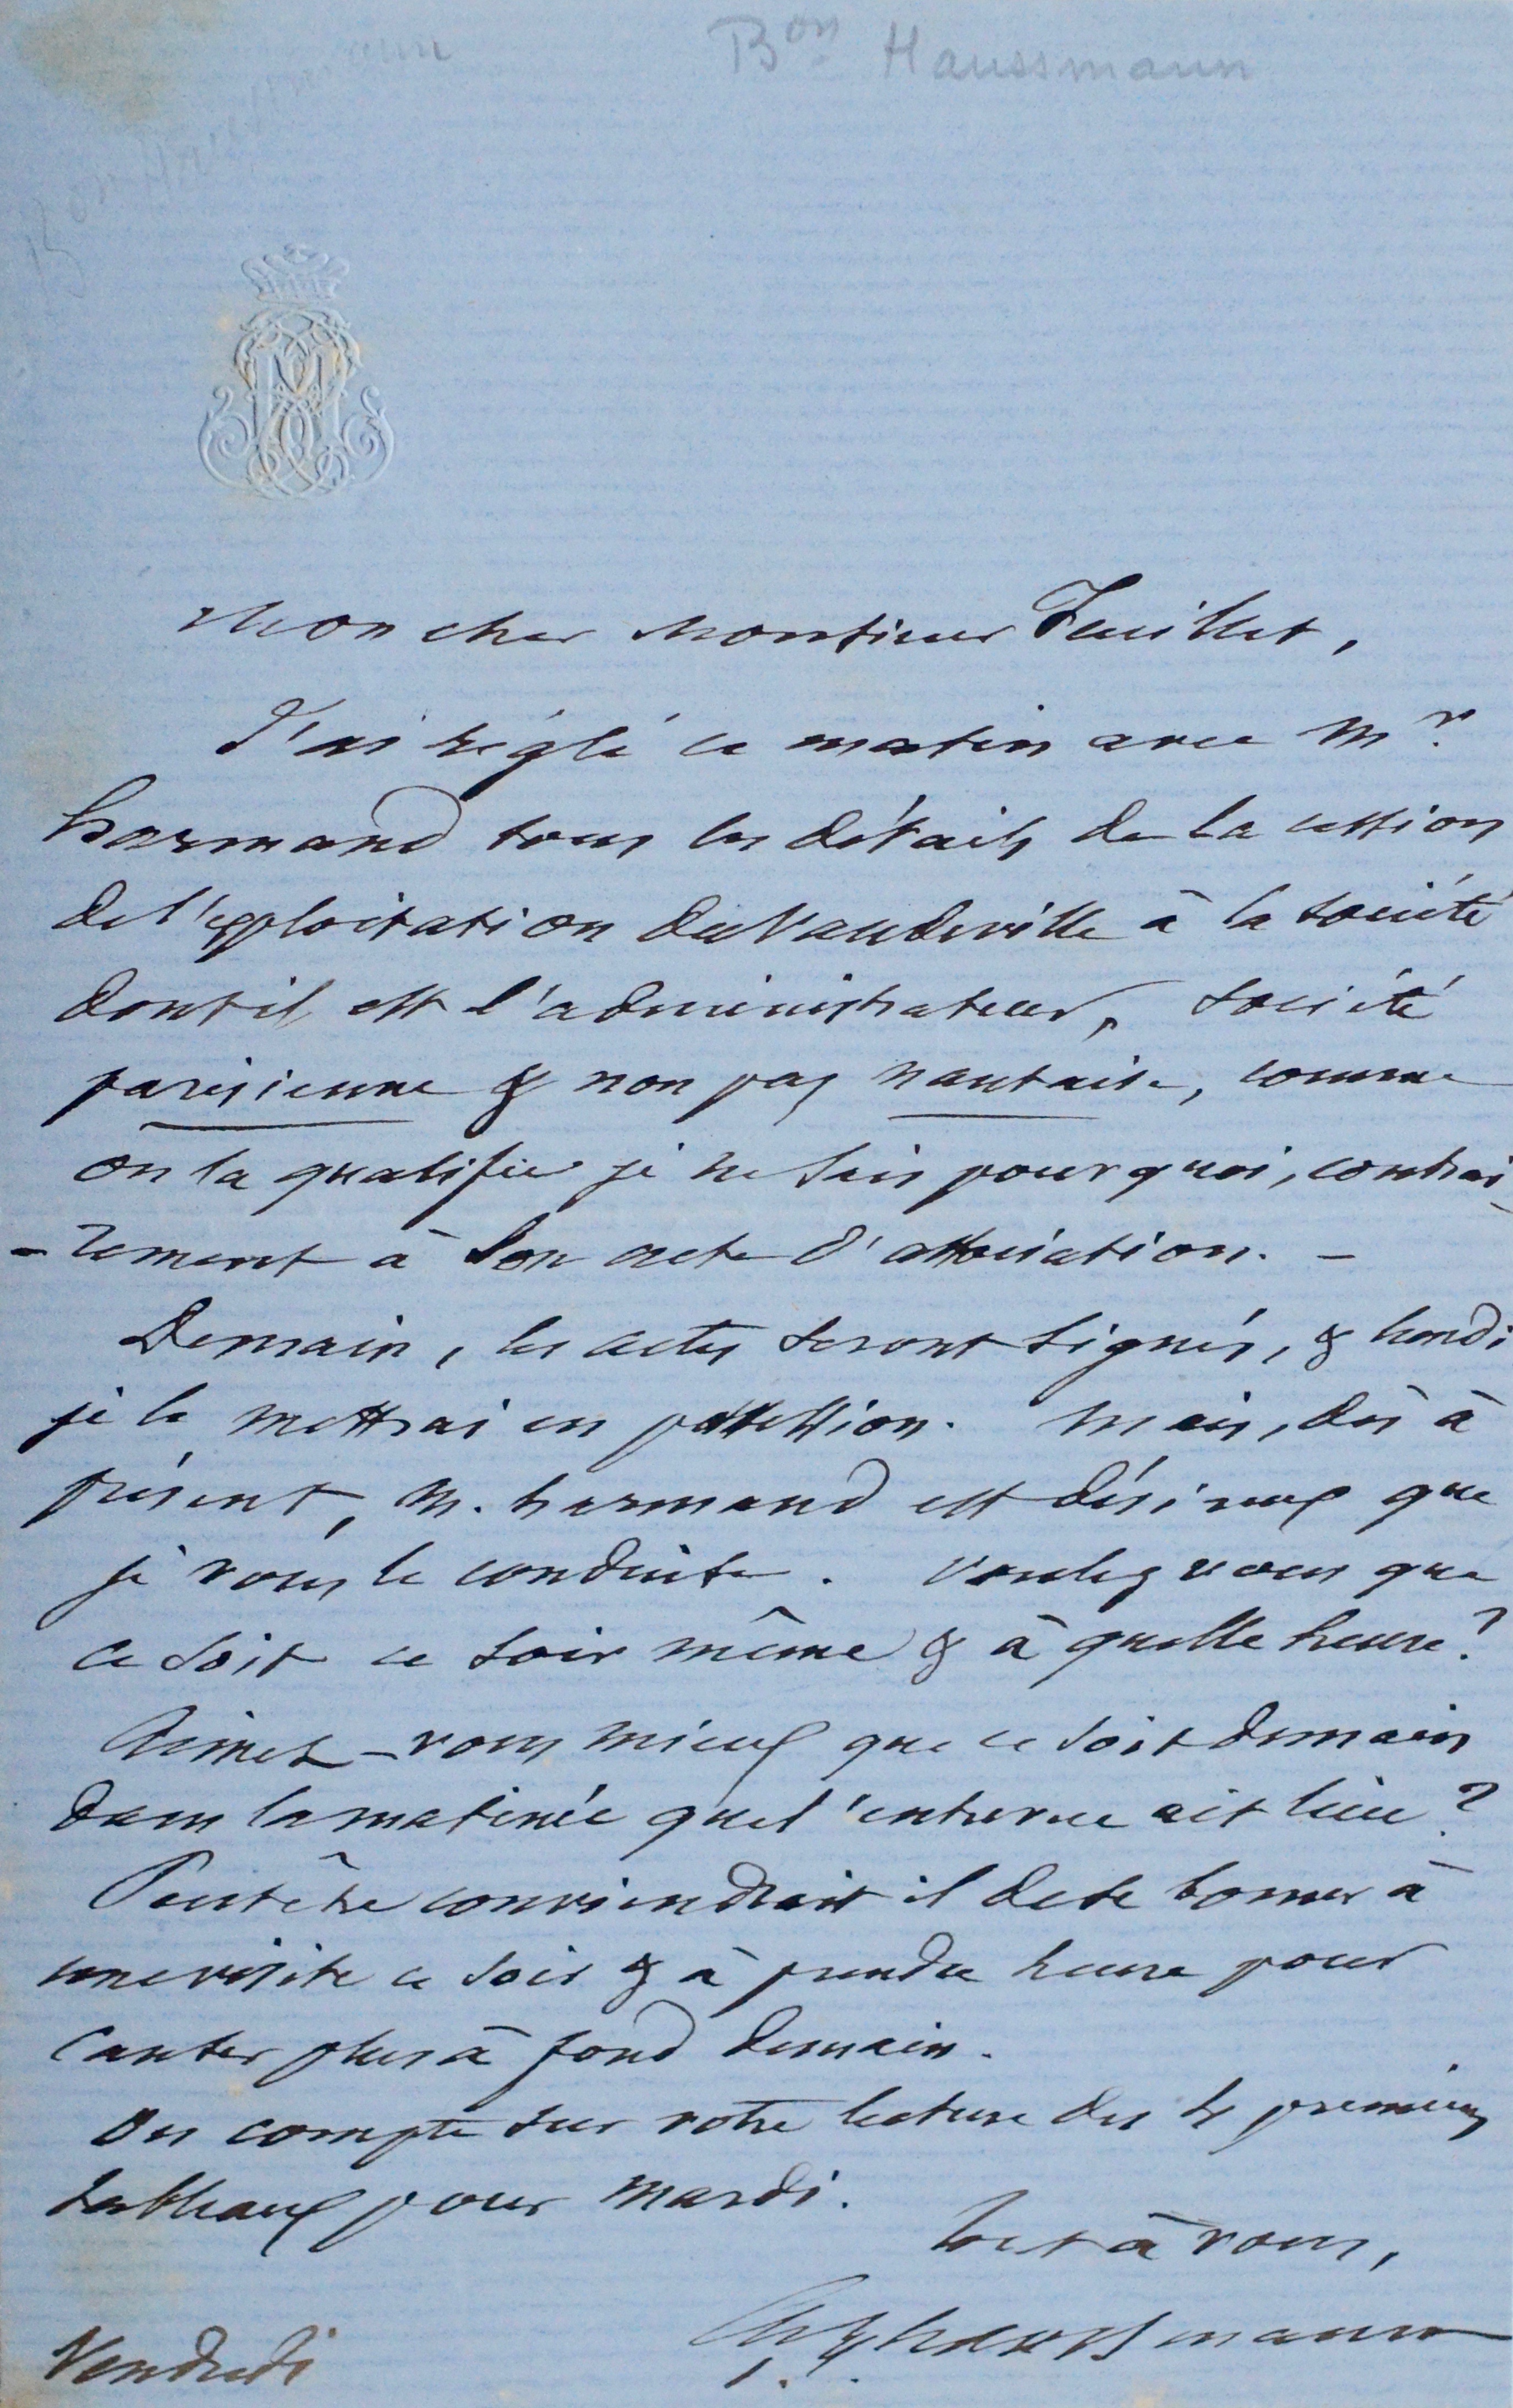 Bon Haussmann
Mon cher Monsieur Feuillet,
J'ai réglé ce matin avec Mr.
harmand tous les détails de la cession
de l'exploitation du Vaudeville à la société
dont il est l'administrateur, société
parisienne & non pas nantaise, comme
on la qualifie je ne sais pourquoi, contrai
-rement à son acte d'association. -
Demain, les actes seront signés, & lundi
je le mettrai en possession. Mais, dès à
présent, M. harmand est désireux que
je vous le conduise. Voulez vous que
ce soit ce soir même & à quelle heure?
Aimez-vous mieux que ce soit demain
dans la matinée que l'entrevue ait lieu?
Peut être conviendrait il de se borner à
une visite ce soir & à prendre heure pour
causer plus à fond demain.
On compte sur votre lecture des 4 premiers
tableaux pour Mardi.
tout à vous,
haussmann
Vendredi